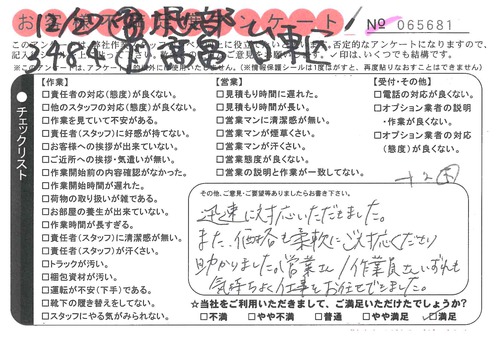 お客様 不満足度 アンケート № 065681
このアンケートは
否定的なアンケートになりますので、
印は、いくつでも結構です。
チェックリスト
【作業】
□責任者の対応(態度)が良くない。
□他のスタッフの対応(態度)が良くない。
□作業を見ていて安心がある。
□責任者(スタッフ)に好感が持てない。
□お客様への挨拶が出来ていない。
□ご近所への挨拶・気遣いが無い。
□作業開始前の内容確認がなかった。
□作業開始時間が遅れた。
□荷物の取り扱いが雑である。
□お部屋の養生が出来ていない。
□作業時間が長すぎる。
□責任者(スタッフ)に清潔感が無い。
□責任者(スタッフ)が汗くさい。
□トラックが汚い。
□梱包資材が汚い。
□運転が不安(下手)である。
□靴下の履き替えをしてない。
□スタッフにやる気がみられない。
【営業】
□見積もり時間に遅れた。
□見積もり時間が長い。
□営業マンに清潔感が無い。
□営業マンが煙草くさい。
□営業マンが汗くさい。
□営業態度が良くない。
□営業の説明と作業が一致してない。
【受付・その他】
□電話の対応が良くない。
□オプション業者の説明
・作業が良くない。
□オプション業者の対応
(態度)が良くない。
その他、ご意見・ご要望等ありましたらお書き下さい。
迅速に対応いただきました。
また、価格も柔軟にご対応くださり
助かりました。営業さん/作業員さんいずれも
気持ちよく仕事をお任せできました。
☆当社をご利用いただきまして、ご満足いただけたでしょうか?
□不満 □やや不満 □普通 □やや満足 □満足